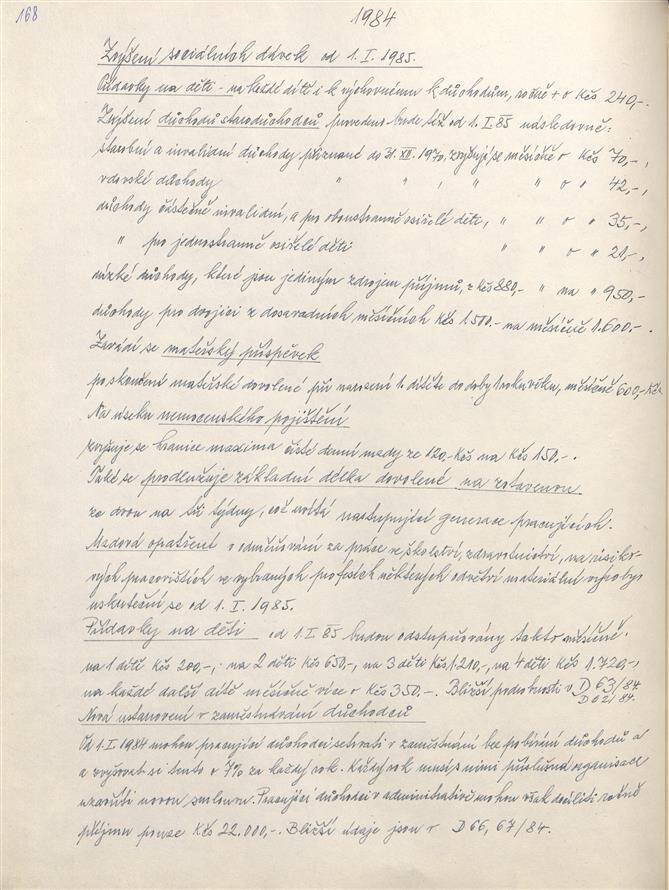 168
1984
Zvýšení sociálních dávek od 1. I. 1985.
Přídavky na děti - na každé dítě i k výchovnému k důchodům, ročně + o Kčs 240,-.
Zvýšení důchodů starodůchodců provedeno bude též od 1. I. 85 následovně:
starobní a invalidní důchody přiznané do 31. XII. 1970, zvyšují se měsíčně o Kčs 70,-,
vdovské důchody " " , " " o " 42,-,
důchody částečně invalidní, a pro oboustranně osiřelé děti, " " o " 35,-,
" pro jednostranně osiřelé děti " " o " 21,-,
nízké důchody, které jsou jediným zdrojem příjmů, z Kčs 880,- " na " 950,-
důchody pro dvojici z dosavadních měsíčních Kčs 1.500.- na měsíčně 1.600.- .
Zavádí se mateřský příspěvek
po skončení mateřské dovolené při narození 1. dítěte do doby 1 roku věku, měsíčně 600,- Kčs
Na úseku nemocenského pojištění
zvyšuje se hranice maxima čisté denní mzdy ze 120,- Kčs na Kčs 150,-.
Také se prodlužuje základní délka dovolené na zotavenou
ze dvou na tři týdny, což uvítá nastupující generace pracujících.
Mzdová opatření v odměňování za práce ve školství, zdravotnictví, na riziko-
vých pracovištích ve vybraných profesích některých odvětví materiální výroby
uskuteční se od 1. I. 1985.
Přídavky na děti od 1. I. 85 budou odstupňovány takto měsíčně:
na 1 dítě Kčs 200,-, na 2 děti Kčs 650,-, na 3 děti Kčs 1.210,-, na 4 děti Kčs 1.720,-,
na každé další dítě měsíčně více o Kčs 350,-. Bližší podrobnosti v D 63/84.
D 62/84.
Nová ustanovení v zaměstnávání důchodců
Od 1. I. 1984 mohou pracující důchodci setrvati v zaměstnání bez pobírání důchodů a
a zvyšovat si tento o 7% za každý rok. Každý rok musí s nimi příslušná organisace
uzavříti novou smlouvu. Pracující důchodci v administrativě mohou však docíliti ročně
příjmu pouze Kčs 22.000,-. Bližší údaje jsou v D 66, 67/84.